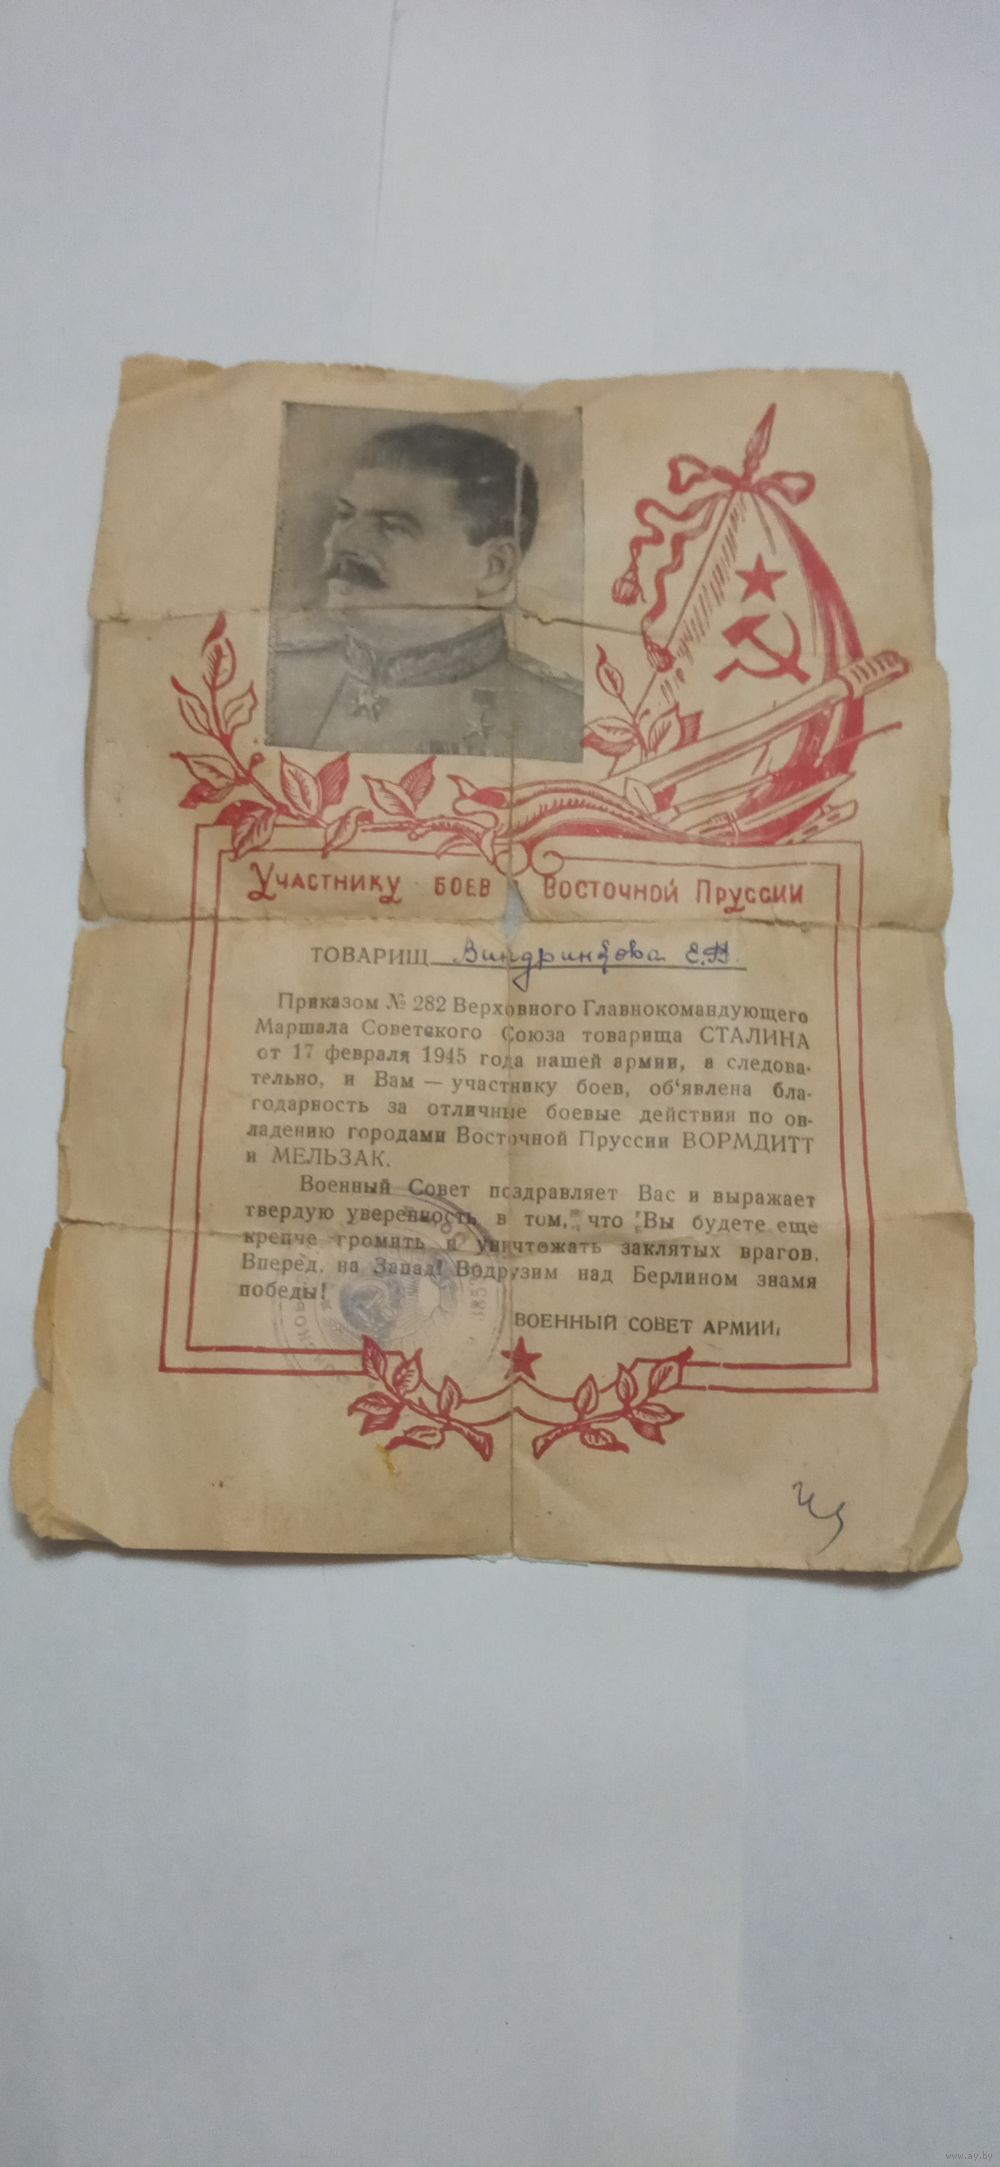 Участнику боев Восточной Пруссии
ТОВАРИЩ Е.В.
Приказом № 282 Верховного Главнокомандующего
Маршала Советского Союза товарища СТАЛИНА
от 17 февраля 1945 года нашей армии, а следова-
тельно, и Вам — участнику боев, об‘явлена бла-
годарность за отличные боевые действия по ов-
ладению городами Восточной Пруссии ВОРМДИТТ
и МЕЛЬЗАК.
Военный Совет поздравляет Вас и выражает
твердую уверенность в том, что Вы будете еще
крепче громить и уничтожать заклятых врагов.
Вперед, на Запад! Водрузим над Берлином знамя
победы!
ВОЕННЫЙ СОВЕТ АРМИИ.
www.ay.by